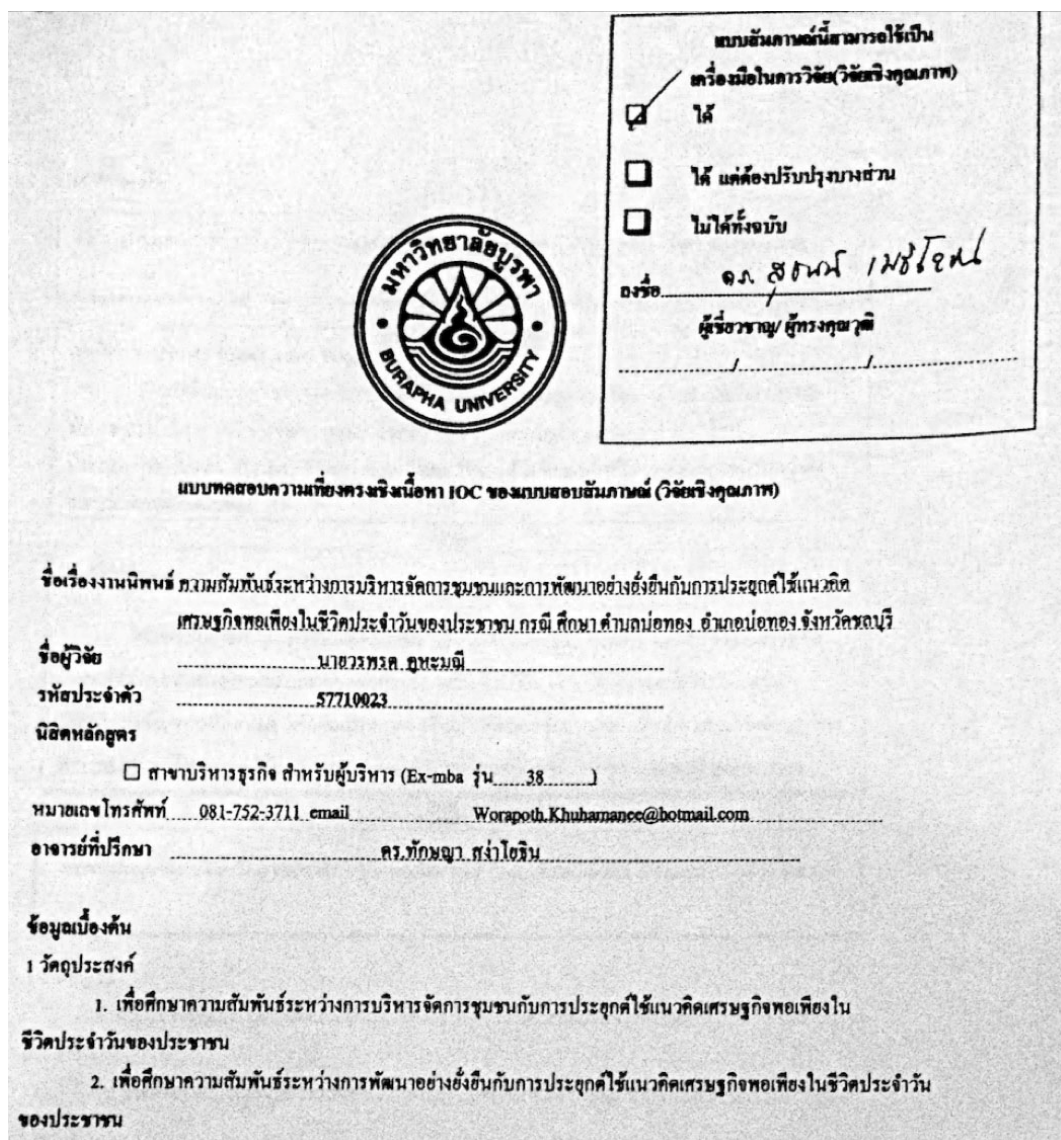 แบบสัมภาษณ์นี้สามารถใช้เป็น
เครื่องมือในการวิจัย(วิจัยเชิงคุณภาพ)
ได้
ได้ แต่ต้องปรับปรุงบางส่วน
ไม่ได้ทั้งฉบับ
ลงชื่อ ดร.
ผู้เชี่ยวชาญ/ ผู้ทรงคุณวุฒิ
/ /
มหาวิทยาลัยบูรพา
BURAPHA UNIVERSITY
แบบทดสอบความเที่ยงตรงเชิงเนื้อหา IOC ของแบบสอบสัมภาษณ์ (วิจัยเชิงคุณภาพ)
ชื่อเรื่องงานนิพนธ์ ความสัมพันธ์ระหว่างการบริหารจัดการชุมชนและการพัฒนาอย่างยั่งยืนกับการประยุกต์ใช้แนวคิด
เศรษฐกิจพอเพียงในชีวิตประจำวันของประชาชน กรณี ศึกษา ตำบลบ่อทอง อำเภอบ่อทอง จังหวัดชลบุรี
ชื่อผู้วิจัย นายวรพรต คูหะมณี
รหัสประจำตัว 57710023
นิสิตหลักสูตร
สาขาบริหารธุรกิจ สำหรับผู้บริหาร (Ex-mba รุ่น 38 )
หมายเลขโทรศัพท์ 081-752-3711 email Worapoth.Khuhamanee@hotmail.com
อาจารย์ที่ปรึกษา ดร.ทักษญา สง่าโยธิน
ข้อมูลเบื้องต้น
1 วัตถุประสงค์
1. เพื่อศึกษาความสัมพันธ์ระหว่างการบริหารจัดการชุมชนกับการประยุกต์ใช้แนวคิดเศรษฐกิจพอเพียงใน
ชีวิตประจำวันของประชาชน
2. เพื่อศึกษาความสัมพันธ์ระหว่างการพัฒนาอย่างยั่งยืนกับการประยุกต์ใช้แนวคิดเศรษฐกิจพอเพียงในชีวิตประจำวัน
ของประชาชน